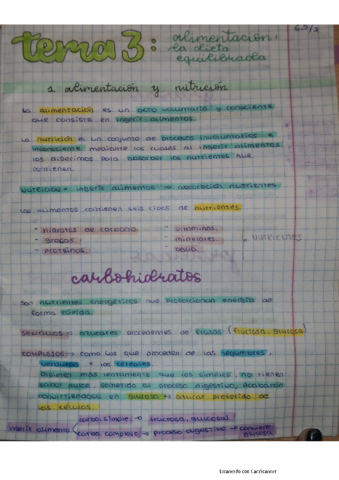 tema 3: alimentación:
la dieta
equilibrada
1. alimentación y nutrición
La alimentación es un acto voluntario y consciente
que consiste en ingerir alimentos.
La nutrición es un conjunto de procesos involuntarios e
inconsciente mediante los cuales al ingerir alimentos
los digerimos para absorber los nutrientes que
contienen.
Nutrición = ingerir alimentos → absorción nutrientes.
Los alimentos contienen seis tipos de nutrientes
- hidratos de carbono. - vitaminas.
- grasas. - minerales. 6 nutrientes
- proteínas. - agua.
carbohidratos
Son nutrientes energéticos que proporcionan energía de
forma rápida.
SENCILLOS → azúcares procedentes de frutas (fructosa, glucosa)
COMPLEJOS → como los que proceden de las legumbres,
verduras y los cereales.
más lentamente que los simples, no tienen
sabor dulce. Sometido al proceso digestivo, acabarán
convirtiéndose en glucosa → azúcar preferido de
las células.
carbo. simple → fructosa, glucosa
ingerir alimento
carbo. complejo → proceso digestivo → convierte
glucosa
Escaneado con CamScanner